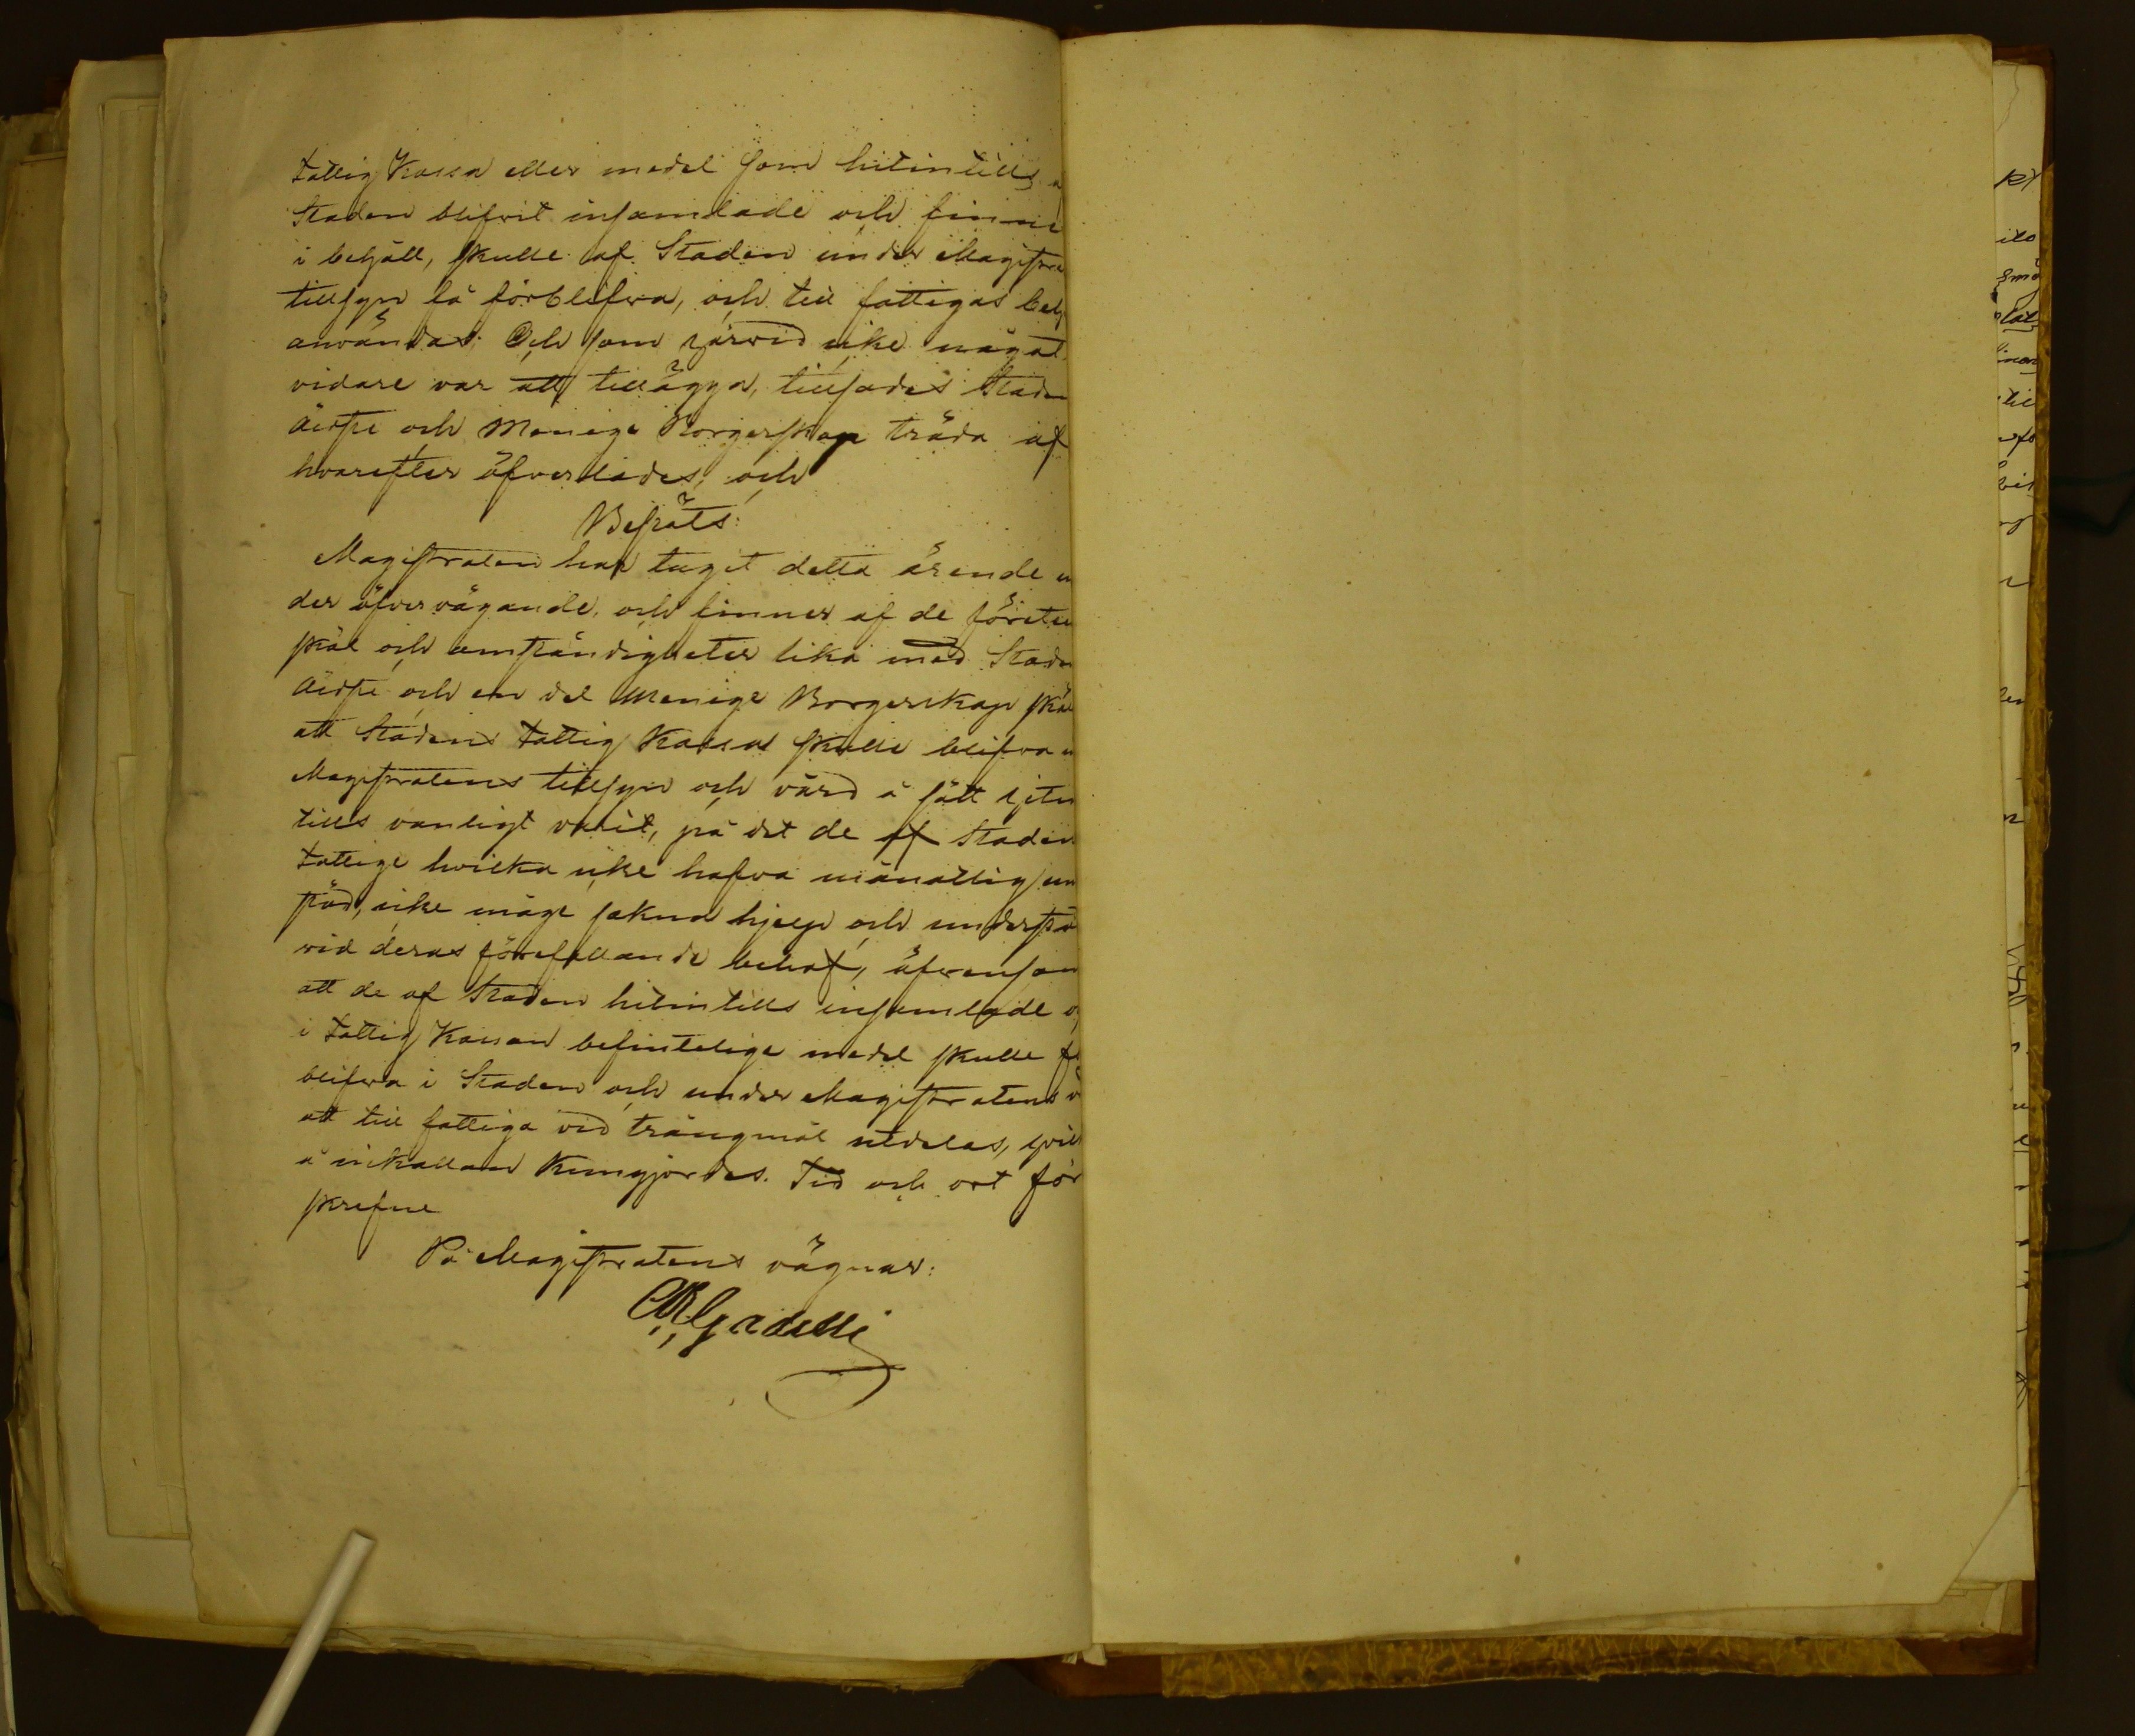 Fattig Kassa eller medel som hitintills a
Staden blifvit insamlade och finne
i behåll, skulle af Staden under Magistra
tillsyn få förblifwa, och till fattigas beh
användas: Och som härvid icke något
vidare var att tillägga, tillsades Staden
Äldste och Menige Borgerskap träda af
hvarefter öfverlades; och
Beslöts:
Magistraten har tagit detta ärende un
der öfvervägande, och finner af de förete
skäl och omständigheter lika med Staden
Äldste och en del Menige Borgerskap skäl
att Stadens Fattig Kassa skulle blifva u
Magistratens tillsyn och vård å sätt hitin
tills vanligt varit, på det de af Staden
Fattige hvilka icke hafva månatlig un
stöd, icke måge sakna hjelp och understö
vid deras förefallande behof, äfvensom
att de af Staden hitintills insamlade o
i Fattig Kassan befintelige medel skulle fö
blifva i Staden och under Magistratens v
att till fattiga vid trångmål utdelas, hvil
å inkallan Kungjordes. Tid och ort för
skrefne
På Magistratens vägnar: